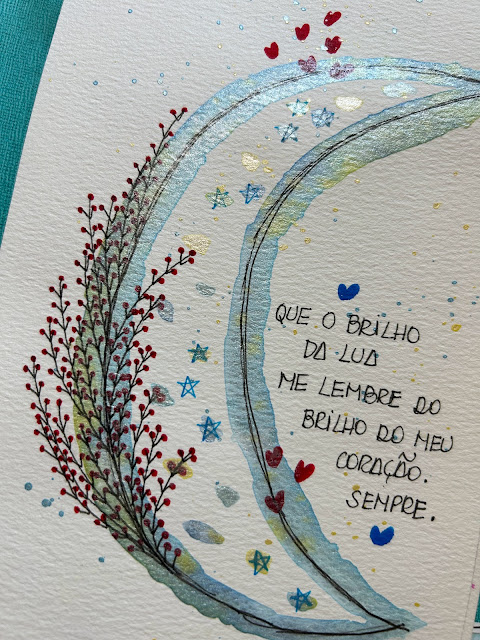 QUE O BRILHO
DA LUA
ME LEMBRE DO
BRILHO DO MEU
CORAÇÃO.
SEMPRE.